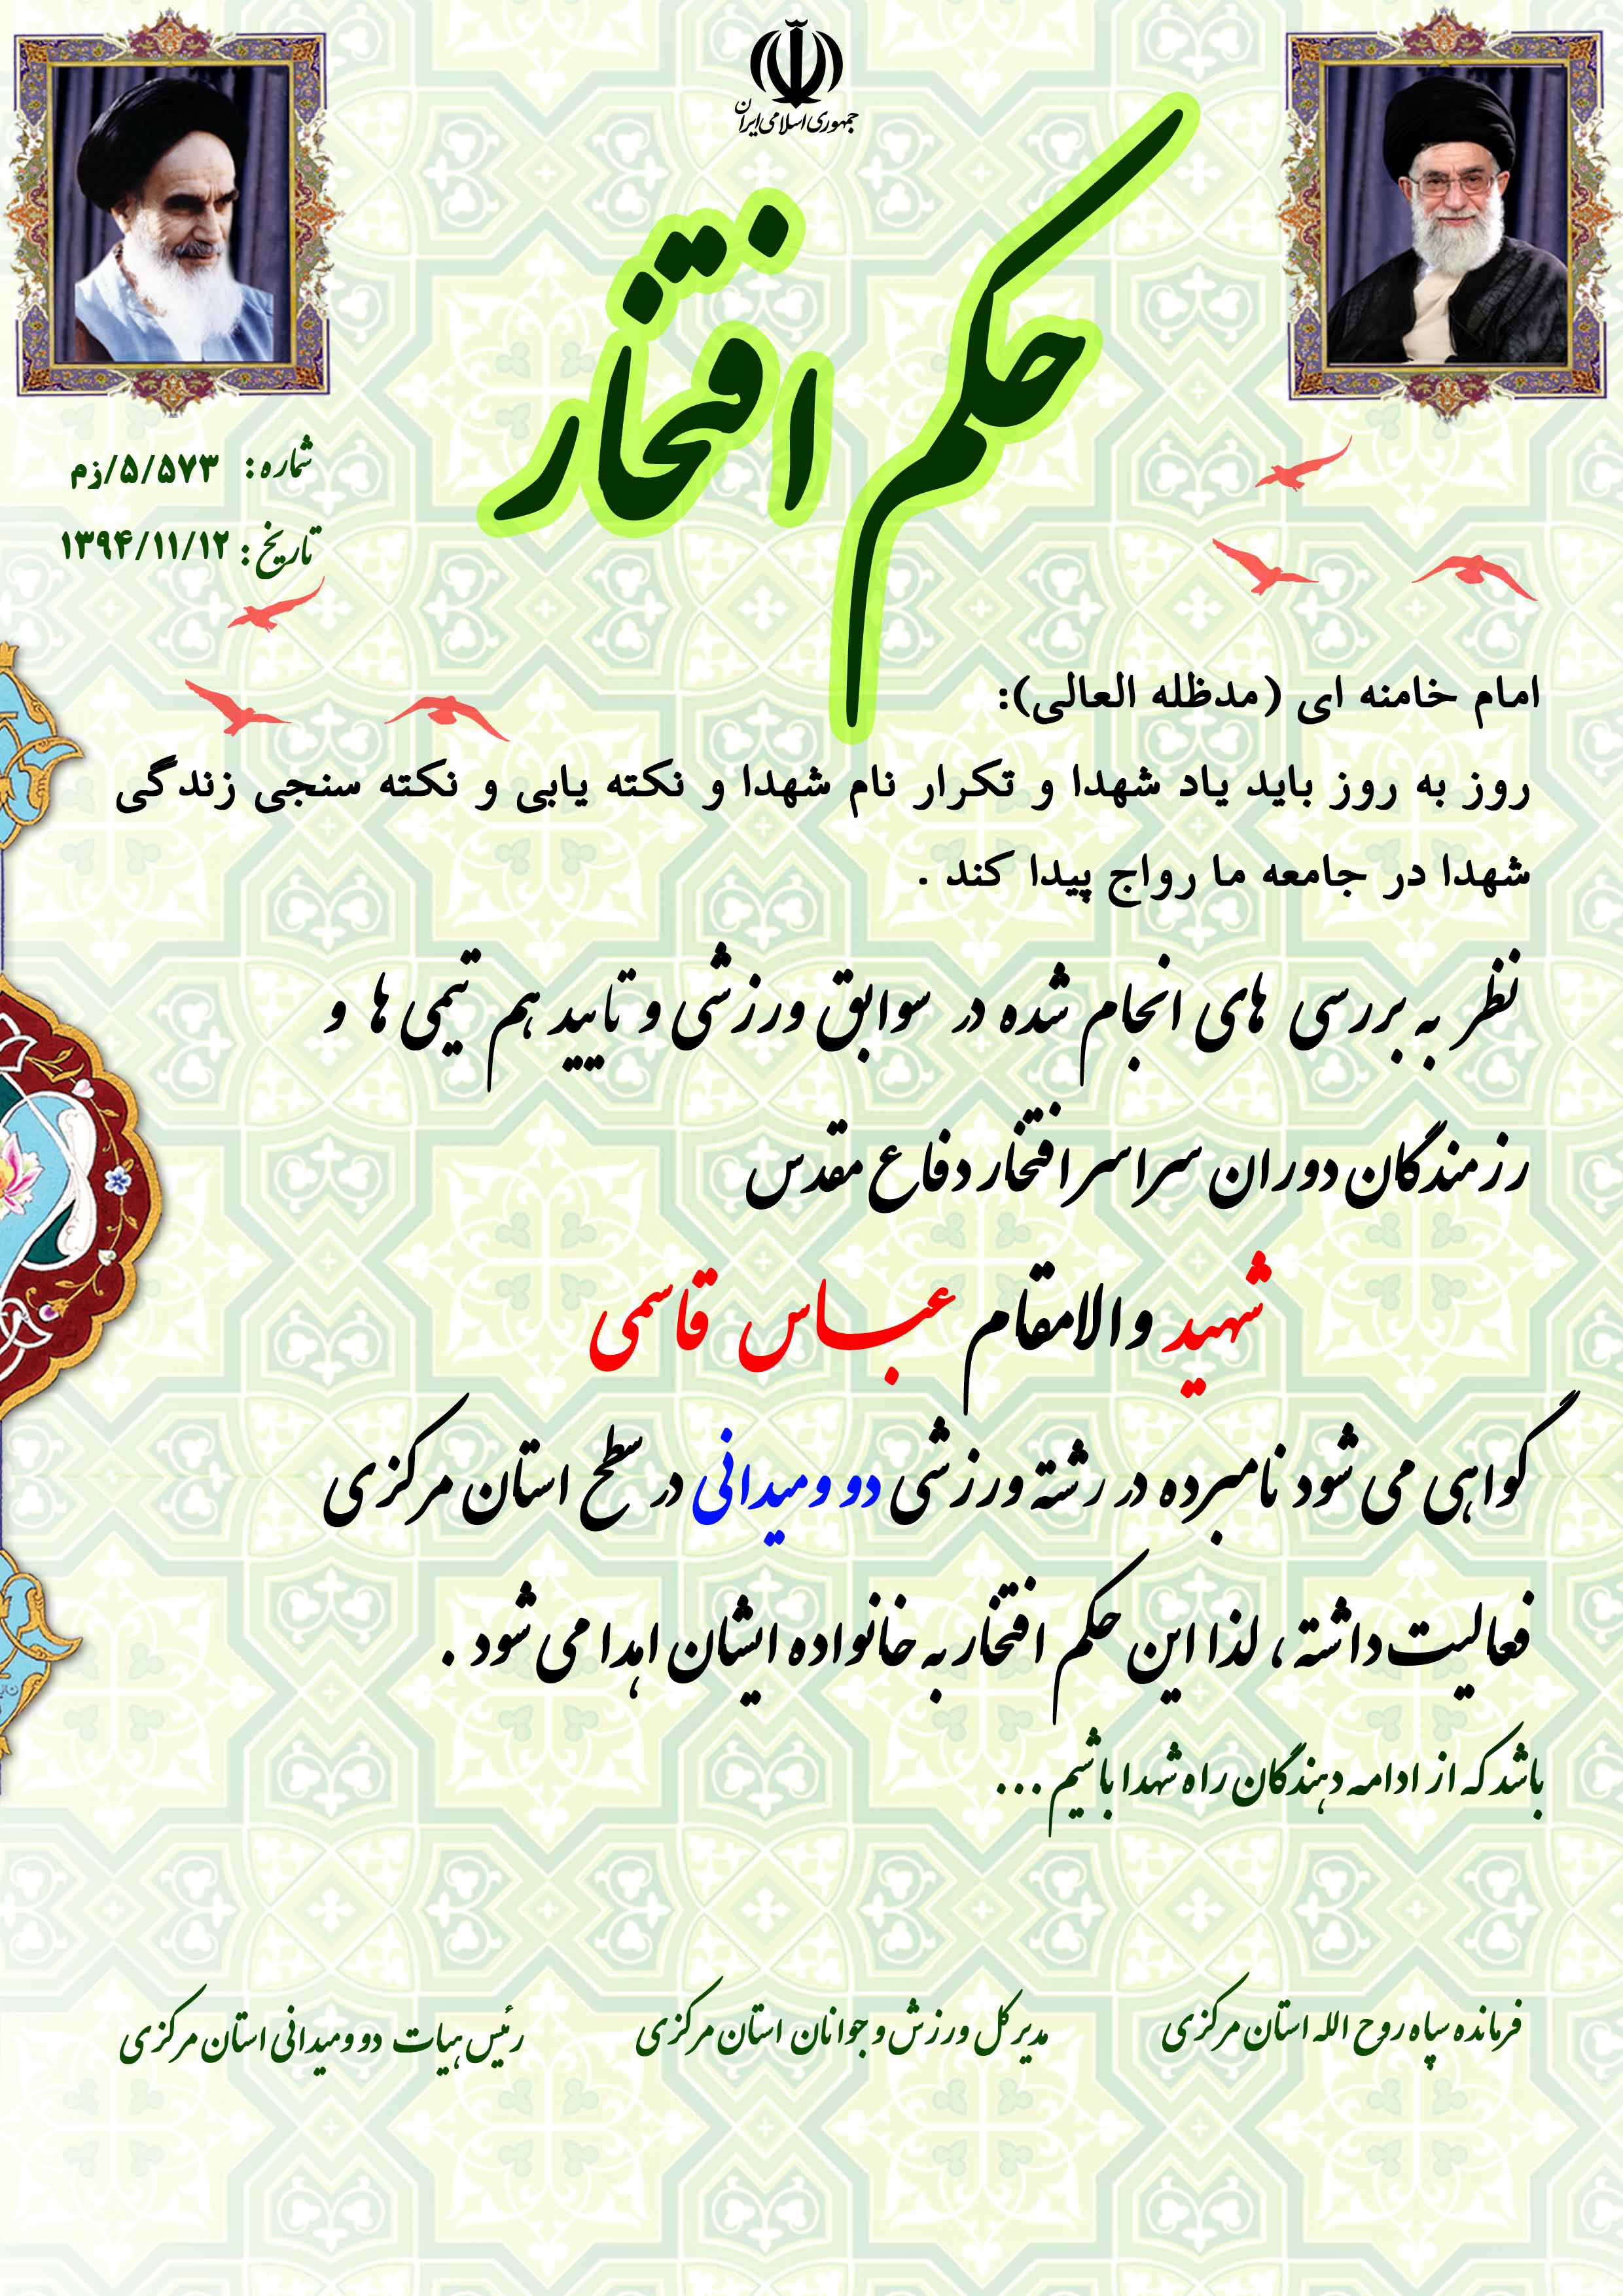 جمهوری اسلامی ایران
حکم افتخار
شماره: ۵/۵۷۳/زم
تاریخ: ۱۳۹۴/۱۱/۱۲
امام خامنه ای (مدظله العالی):
روز به روز باید یاد شهدا و تکرار نام شهدا و نکته یابی و نکته سنجی زندگی
شهدا در جامعه ما رواج پیدا کند .
نظر به بررسی های انجام شده در سوابق ورزشی و تایید هم تیمی ها و
رزمندگان دوران سراسر افتخار دفاع مقدس
شهید والامقام عباس قاسمی
گواهی می شود نامبرده در رشته ورزشی دو ومیدانی در سطح استان مرکزی
فعالیت داشته، لذا این حکم افتخار به خانواده ایشان اهدا می شود .
باشد که از ادامه دهندگان راه شهدا باشیم ...
فرمانده سپاه روح الله استان مرکزی
مدیر کل ورزش و جوانان استان مرکزی
رئیس هیات دو ومیدانی استان مرکزی